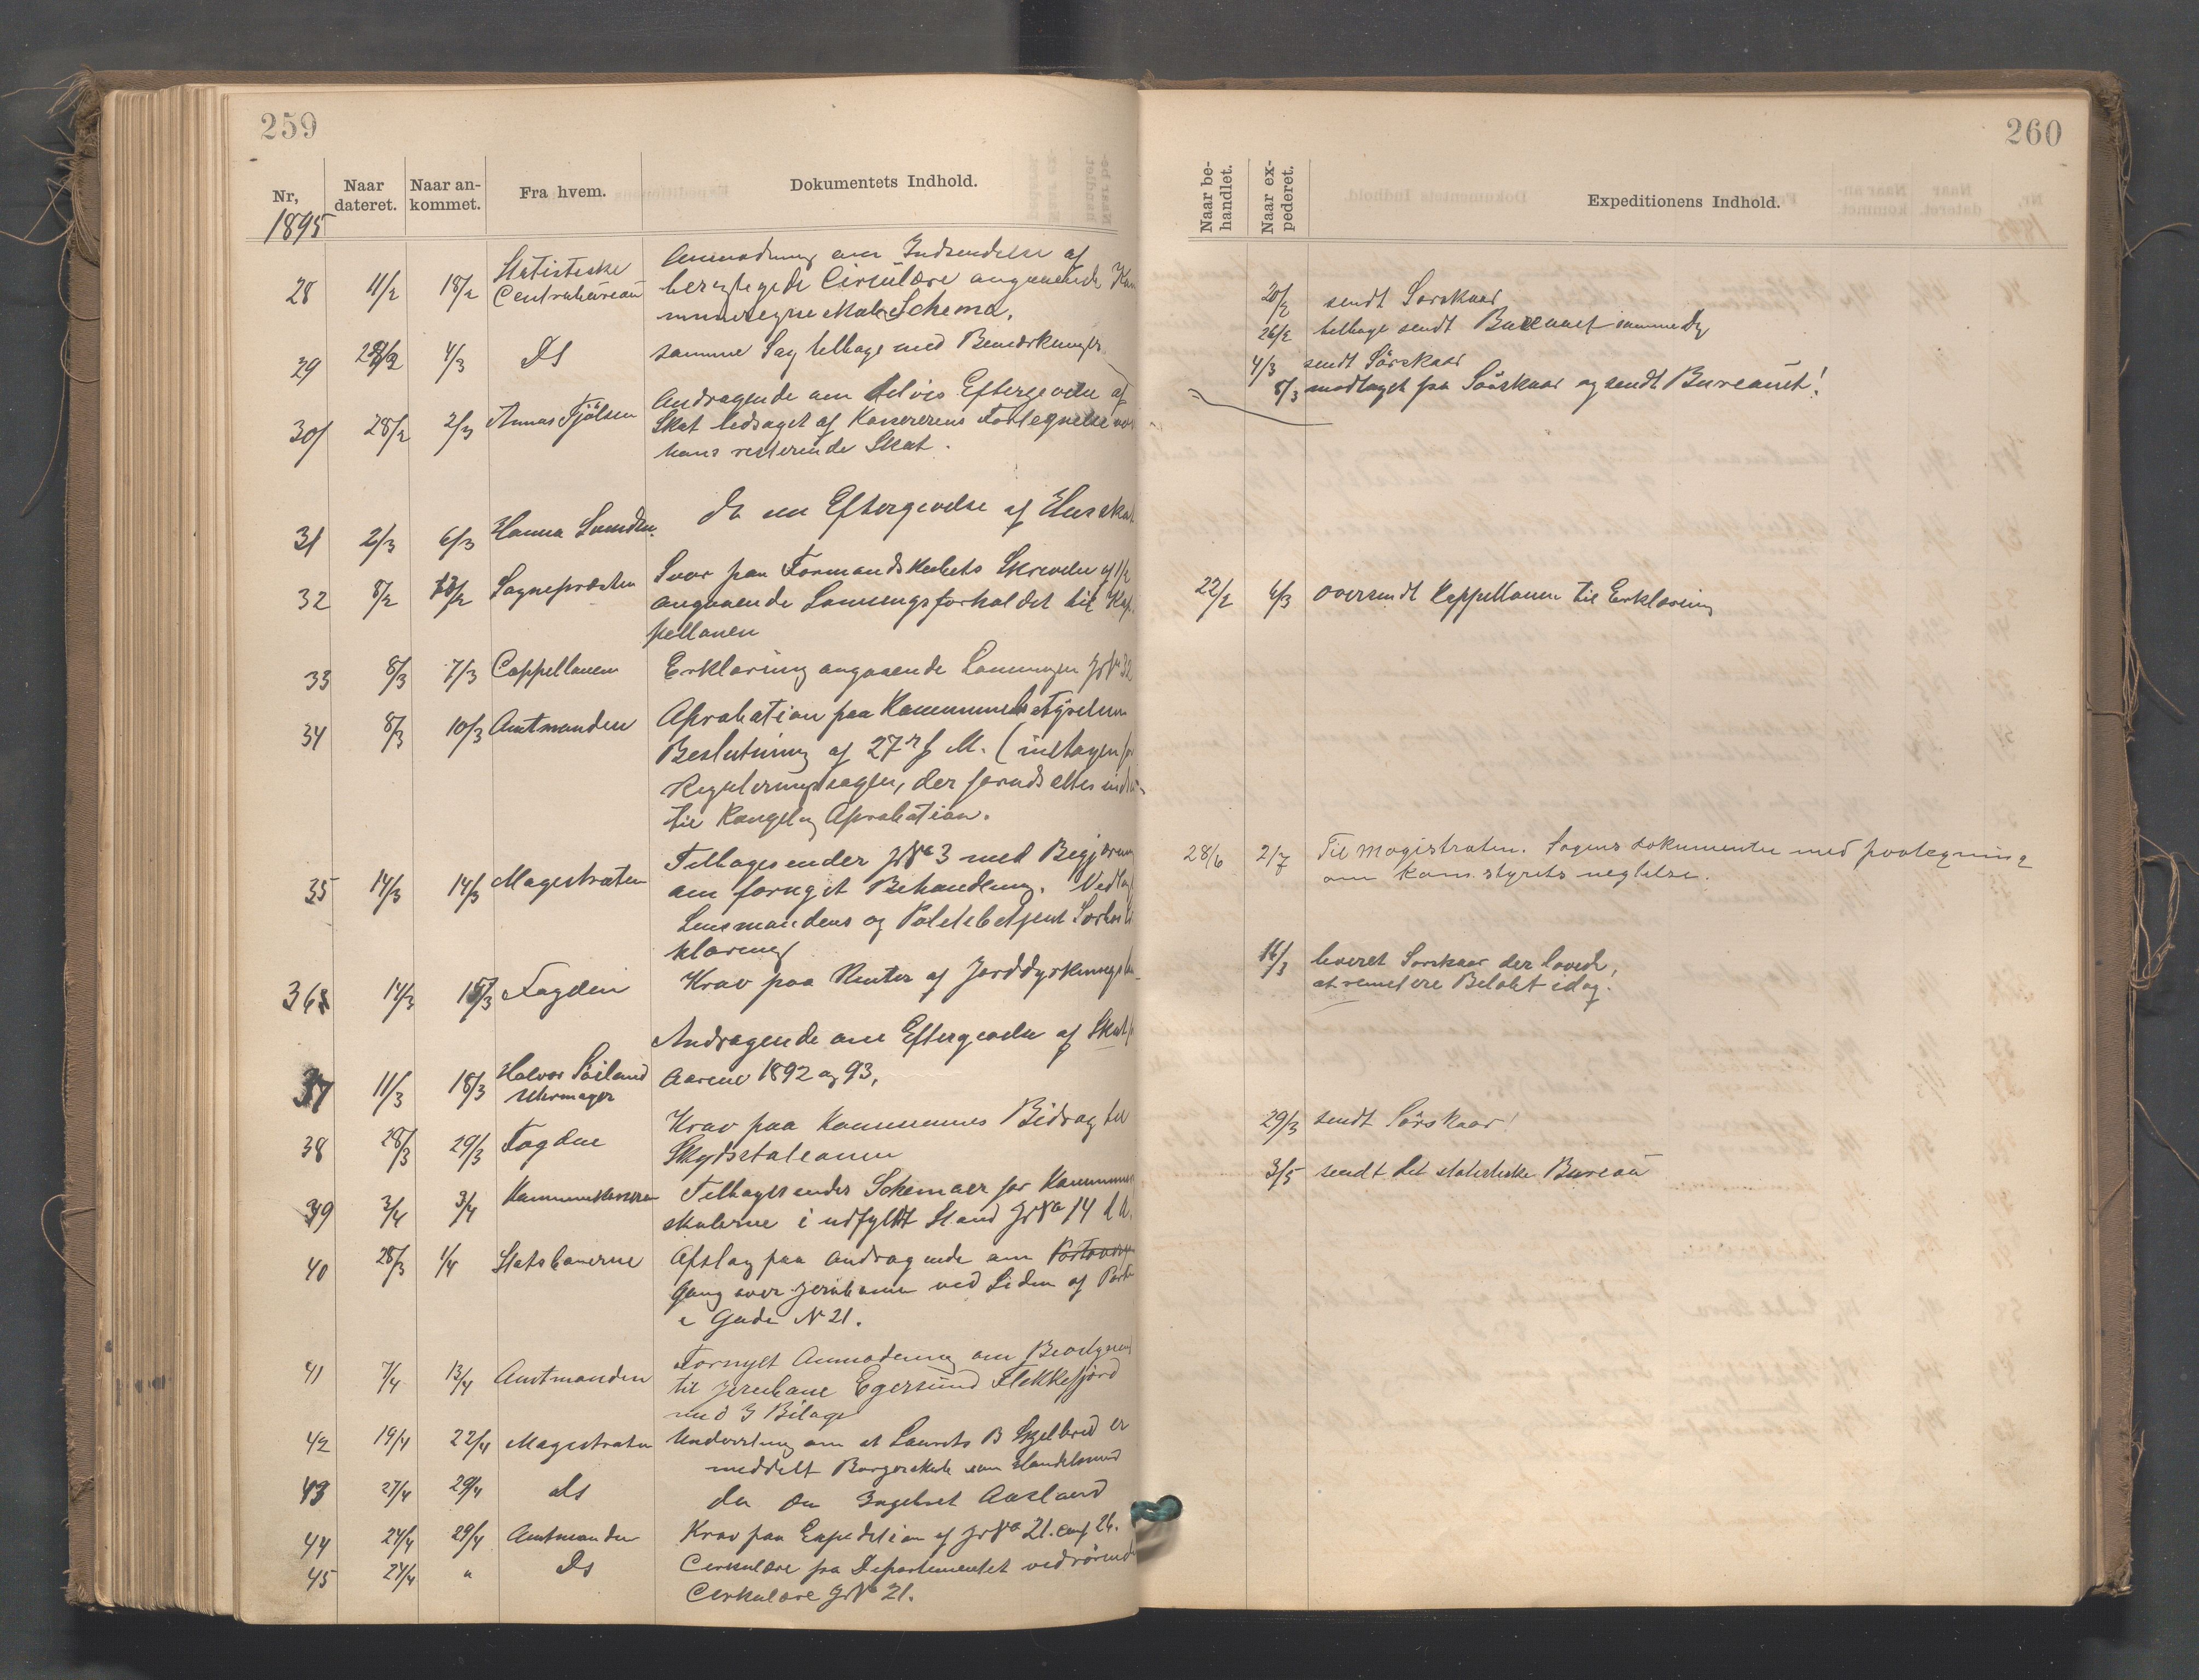 259
Nr,
Naar
dateret.
Naar an-
kommet.
Fra hvem.
Dokumentets Indhold.
1895
28 11/2 18/2 Statistiske
Centralbureau
Anmodning om Indsendelse af
Circulære angaaende
Schema.
29 4/3 Ds samme Sag tilbage med Bemærkninger
30 28/2 2/3
Andragende om delvis Eftergivelse af
Skat ledsaget af Kassererens Fortegnelse
hans resterende Skat.
31 2/3 6/3 Hanna
do om Eftergivelse af
32 8/2 Sognepræsten Svar paa Formandskabets Skrivelse af 1/2
angaaende Lønningsforholdet til Kap
pellanen
33 8/3 7/3 Cappellanen Erklæring angaaende Lønningen JrNo 32
34 8/3 10/3 Amtmanden Aprobation paa Kommunebestyrelsens
Beslutning af 27de f M. (
Reguleringssagen, der
til Kongelig Aprobation.
35 14/3 14/3 Magistraten Tilbagesender JrNo 3 med Begjæring
om fornyet Behandling.
Lensmandens og Politibetjent
klæring
36 14/3 15/3 Fogden Krav paa Renter af
37 11/3 18/3 Halvor
Uhrmager
Andragende om Eftergivelse af Skat
Aarene 1892 og 93,
38 28/3 29/3 Fogden Krav paa Kommunens Bidrag til
Skydsstationen
39 3/4 3/4 Kommunekasseren Tilbagesender Schemaer for Kommune
skolerne i udfyldt Stand JrNo 14 d A.
40 28/3 1/4 Statsbanerne Afslag paa Andragende om
Gang over jernbanen ved Siden af
Gade N 21.
41 7/4 13/4 Amtmanden Fornyet Anmodning om
til jernbane Egersund Flekkefjord
med 3 Bilage
42 19/4 22/4 Magistraten Underretning om at Laurits B er
meddelt Borgerskab som Handelsmand
43 27/4 29/4 ds do om Ingebret Aasland
44 24/4 29/4 Amtmanden Krav paa Expedition af JrNo 21. conf 26.
45 24/4 " Ds Cirkulære fra Departementet vedrörende
Cirkulære JrNo 21.
260
Naar be-
handlet.
Naar ex-
pederet.
Expeditionens Indhold.
20/2 sendt Sørskaar
26/2 tilbage sendt Bureauet samme Dg
4/3 sendt Sörskaar
8/3 modtaget fra Sörskaar og sendt Bureauet!
22/2 6/3 oversendt Kappellanen til Erklæring
28/6 2/7 Til Magistraten. Sagens dokumenter med paategning
om kom.styrets
16/3 leveret Sørskaar der lovede,
at remitere Beløbet idag.
29/3 sendt Sörskaar!
3/5 sendt det statistiske Bureau